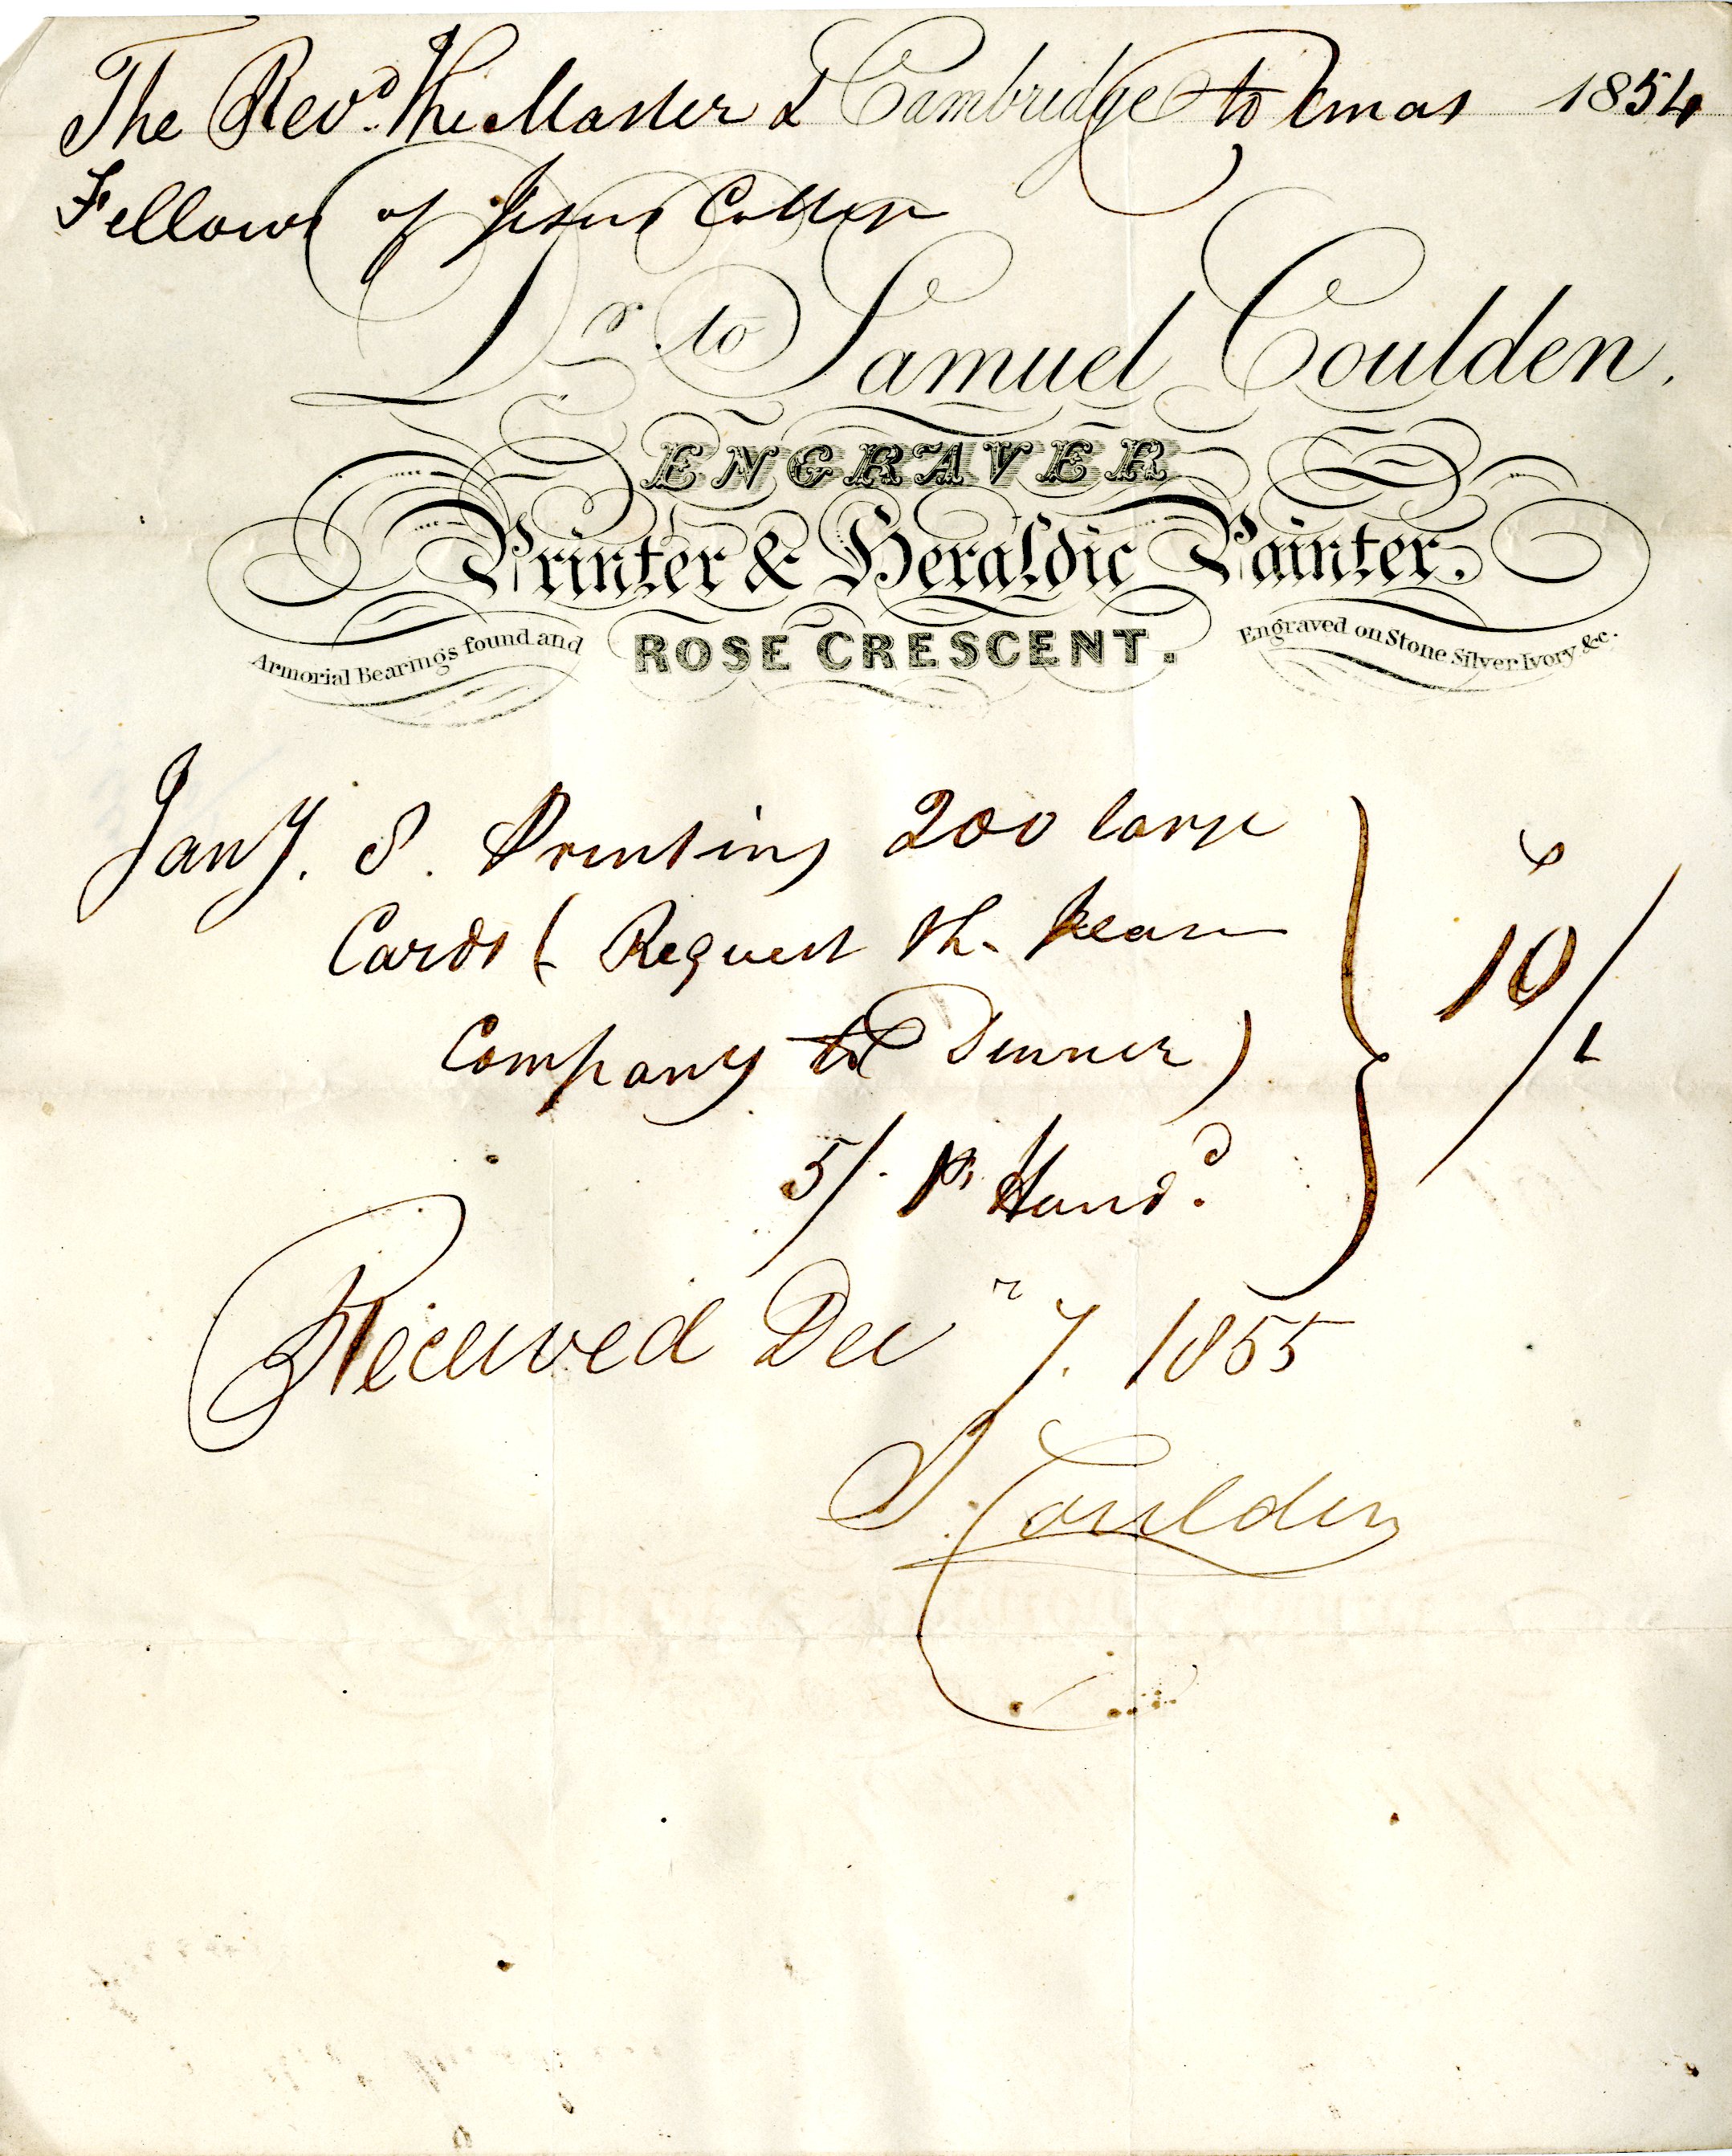 The Revd. The Master & Cambridge to Xmas 1854
Fellows of Jesus College
Dr. to Samuel Coulden.
ENGRAVER
Printer & Heraldic Painter.
Armorial Bearings found and ROSE CRESCENT. Engraved on Stone Silver Ivory &c.
Jany. 8. Printing 200 large
Cards (Request the pleasure
Company to Dinner)
10/
5/. pr. Hundd.
Received Decr 7. 1855
S. Coulden